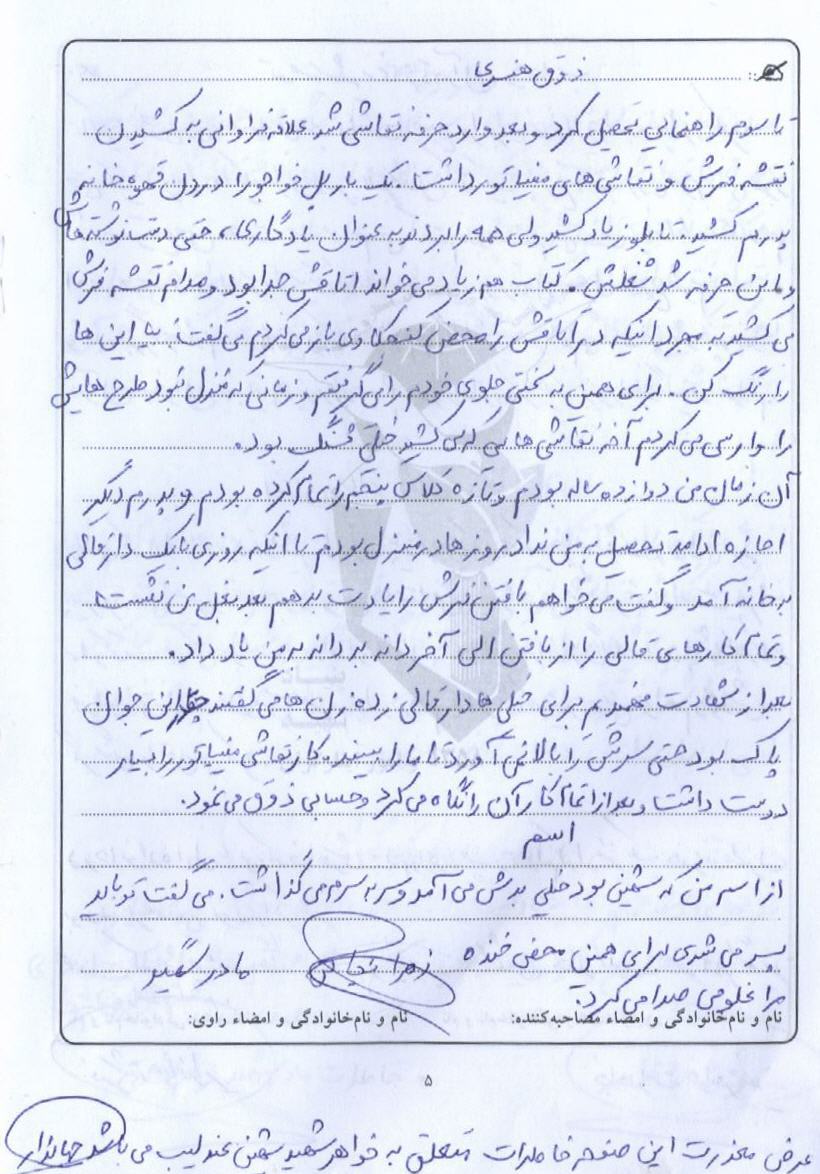 ذوق هنری
تا سوم راهنمایی تحصیل کرد و بعد وارد حرفه نقاشی شد علاقه فراوانی به کشیدن
نقشه فرش و نقاشی های مینیاتور داشت. یک بار پل خواجو را در دل قهوه خانه
پدرم کشید. تابلو زیاد کشید ولی همه را بردند به عنوان یادگاری، حتی دست نوشته هاش
و این حرفه شد شغلش. کتاب هم زیاد می خواند اتاقش جدا بود و مدام نقشه فرش
می کشید به مجرد اینکه در اتاقش را محض کنجکاوی باز می کردم می گفت: بیا این ها
را رنگ کن. برای همین به سختی جلوی خودم را می گرفتم و زمانی که منزل نبود طرح هایش
را وارسی می کردم آخر نقاشی هایی که می کشید خیلی قشنگ بود.
آن زمان من دوازده ساله بودم و تازه کلاس پنجم را تمام کرده بودم و پدرم دیگر
اجازه ادامه تحصیل به من نداد روزها در منزل بودم تا اینکه روزی با یک دار قالی
به خانه آمد و گفت می خواهم بافتن فرش را یادت بدهم بعد بغل من نشست
و تمام کارهای قالی را از بافتن الی آخر دانه به دانه به من یاد داد.
بعد از شهادت فهمیدیم برای خیلی ها دار قالی زده زن ها می گفتند چقدر این جوان
پاک بود حتی سرش را بالا نمی آورد تا ما را ببیند. کار نقاشی مینیاتور را بسیار
دوست داشت و بعد از اتمام کار آن را نگاه می کرد و حسابی ذوق می نمود.
اسم
از اسم من که شهین بود خیلی بدش می آمد و سر به سرم می گذاشت. می گفت تو باید
پسر می شدی برای همین محض خنده
زهرا
مادر شهید
مرا غلومی صدا می کرد.
نام و نام‌خانوادگی و امضاء مصاحبه‌کننده: نام و نام‌خانوادگی و امضاء راوی:
۵
عرض معذرت این صفحه خاطرات متعلق به خواهر شهید شهین عندلیب می باشد